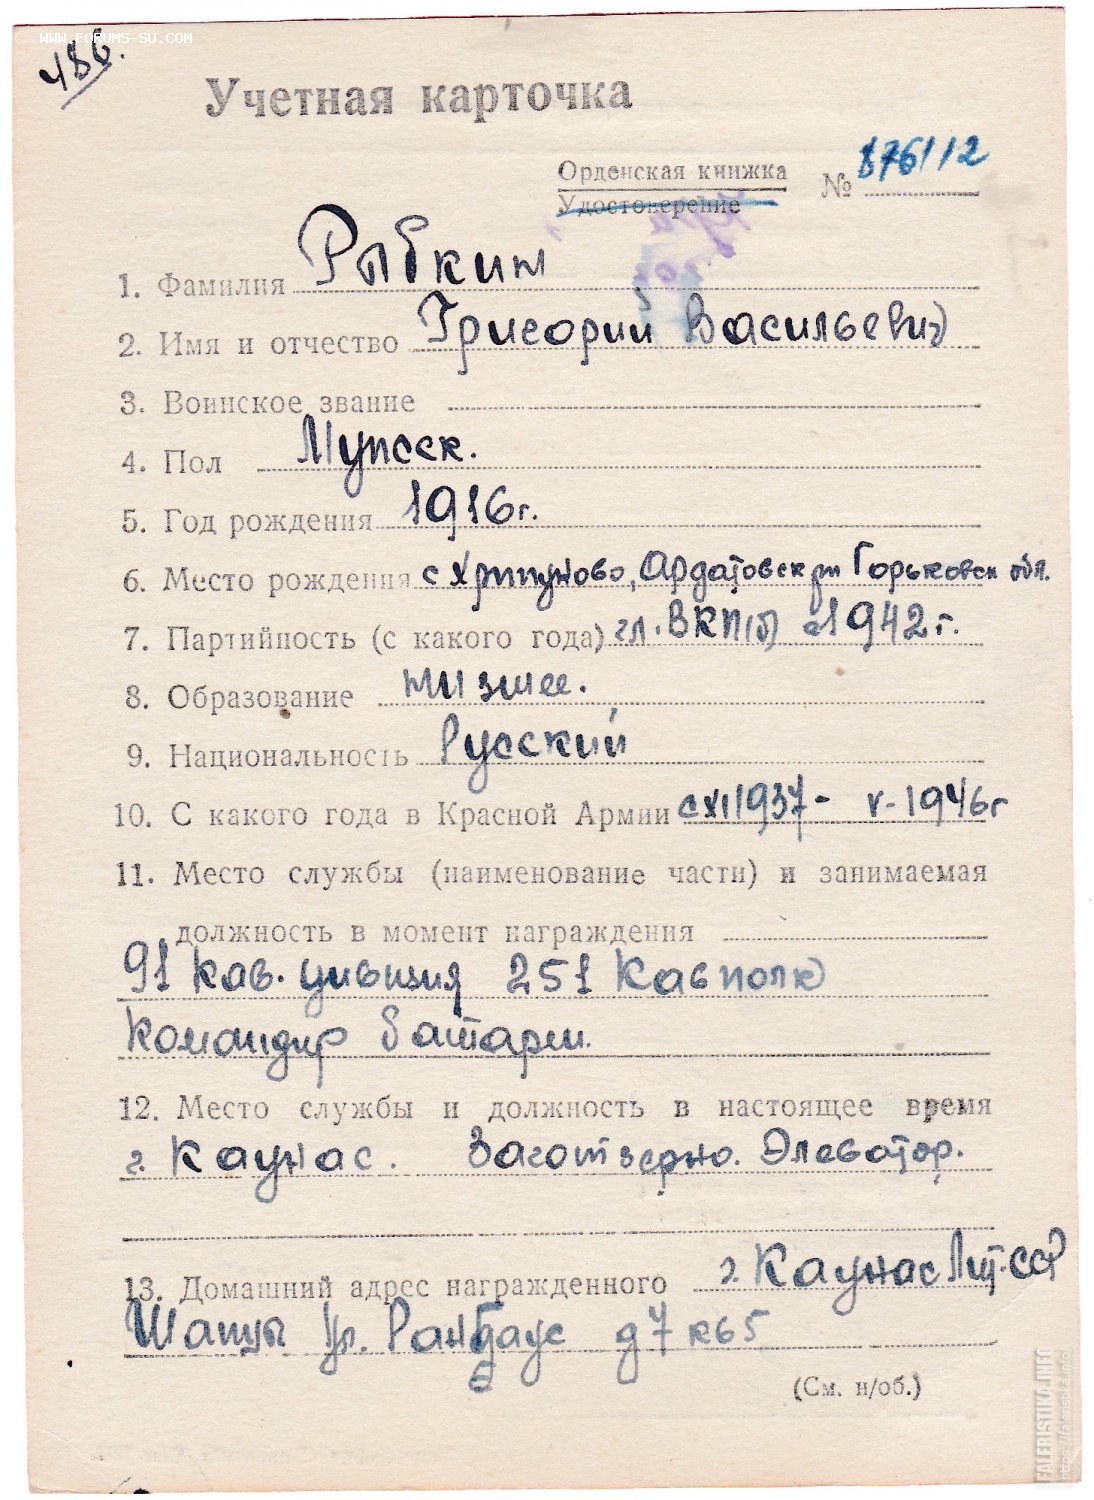 WWW.FORUMS-SU.COM
486.
Учетная карточка
Орденская книжка
Удостоверение
№ 876112
1. Фамилия Рыбкин
2. Имя и отчество Григорий Васильевич
3. Воинское звание
4. Пол Мужск.
5. Год рождения 1916г.
6. Место рождения с Хрипуново, Ардатовск рн Горьковск обл.
7. Партийность (с какого года) чл. ВКП(б) с 1942 г.
8. Образование низшее.
9. Национальность Русский
10. С какого года в Красной Армии с XI 1937 - V-1946г
11. Место службы (наименование части) и занимаемая
должность в момент награждения
91 кав. дивизия 251 Кавполк
Командир батареи.
12. Место службы и должность в настоящее время
г. Каунас. Заготзерно. Элеватор.
13. Домашний адрес награжденного г. Каунас Лит.ССР
Шанцы ул. д 7 к 65
(См. н/об.)
FALERISTIKA.INFO